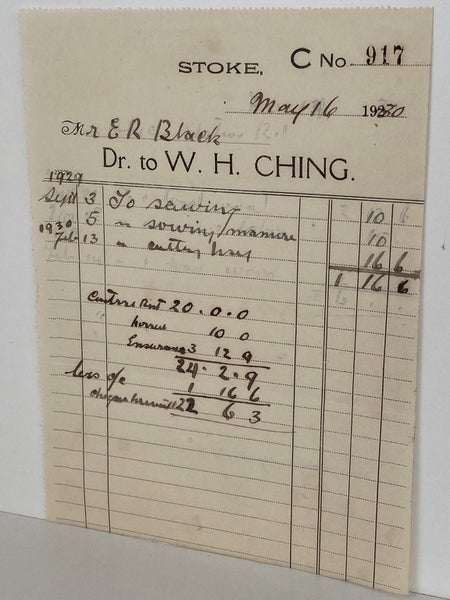 STOKE, C No. 917
May 16 1930
Mr E R Black
Dr. to W. H. CHING.
1929
Sept 3 To sawing 10 6
5 " sowing manure 10
1930
Feb 13 " cutting hay 16 6
1 16 6
Rent 20.0.0
" horses 10 0
Insurance 3 12 9
24.2.9
less a/c 1 16 6
cheque herewith 22 6 3